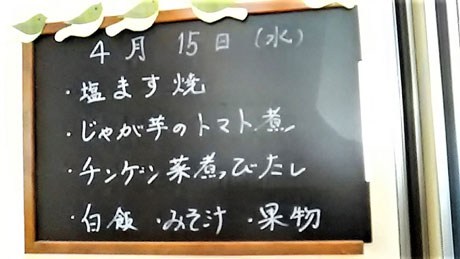 4月 15日 (水)
・塩ます焼
・じゃが芋のトマト煮
・チンゲン菜煮びたし
・白飯 ・みそ汁 ・果物